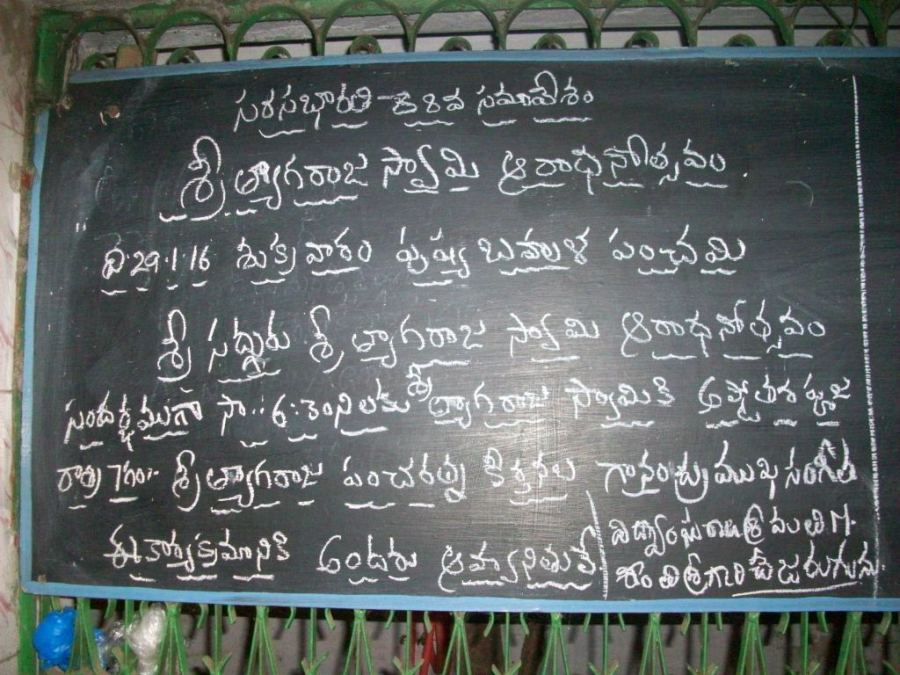 సరసభారతి - 88వ సమావేశం
శ్రీ త్యాగరాజ స్వామి ఆరాధనోత్సవం
ది 29.1.16 శుక్రవారం పుష్య బహుళ పంచమి
శ్రీ సద్గురు శ్రీ త్యాగరాజ స్వామి ఆరాధనోత్సవం
సందర్భముగా సా.. 6:30నిలకు శ్రీ త్యాగరాజ స్వామికి అష్టోతర పూజ
రాత్రి 7గం.. శ్రీ త్యాగరాజ పంచరత్న కీర్తనల గానం ప్రముఖ సంగీత
విద్వాంసురాలు శ్రీమతి
శాంతిశ్రీగారిచే జరుగును.
ఈ కార్యక్రమానికి అందరు ఆహ్వానితులే